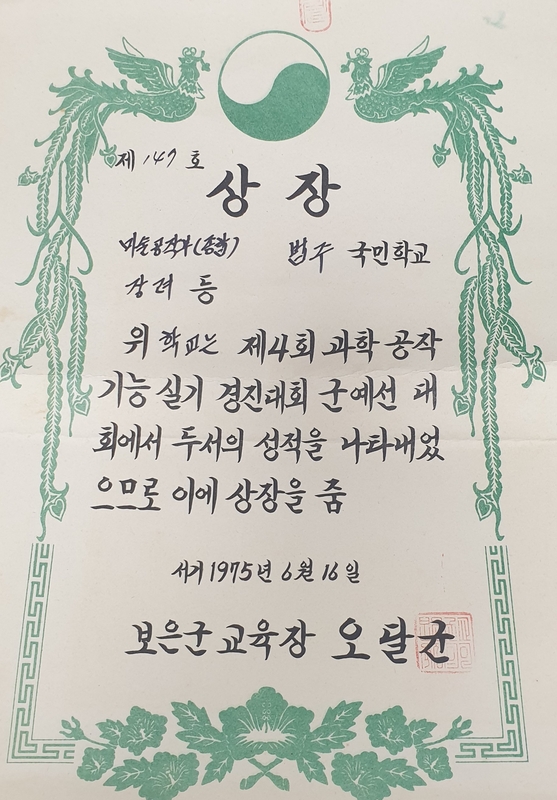 제 147 호
상 장
미술공작부(종합) 범주 국민학교
장려 등
위 학교는 제4회 과학 공작
기능 실기 경진대회 군예선 대
회에서 두서의 성적을 나타내었
으므로 이에 상장을 줌
서기 1975년 6월 16일
보은군 교육장 오달균